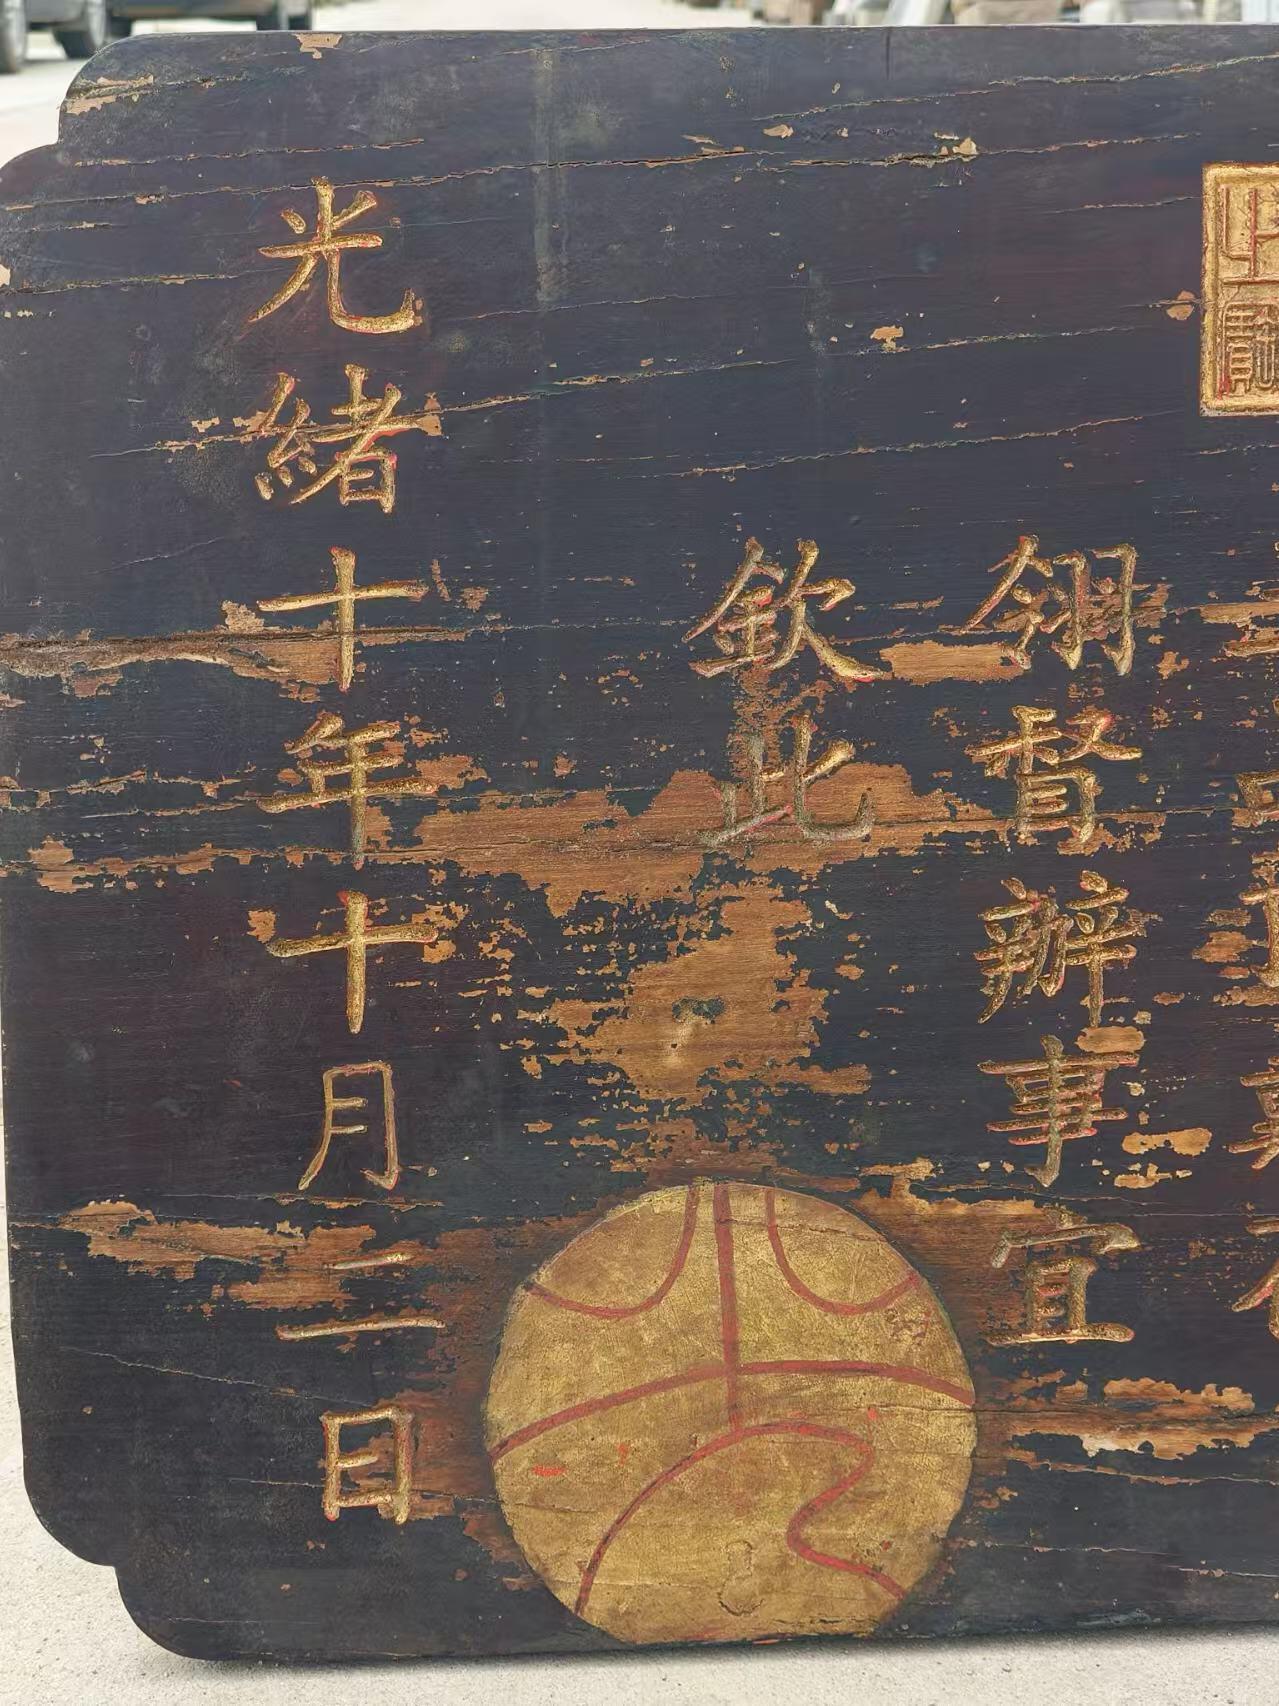 翎督辦事宜
欽此
光緒十年十月二日